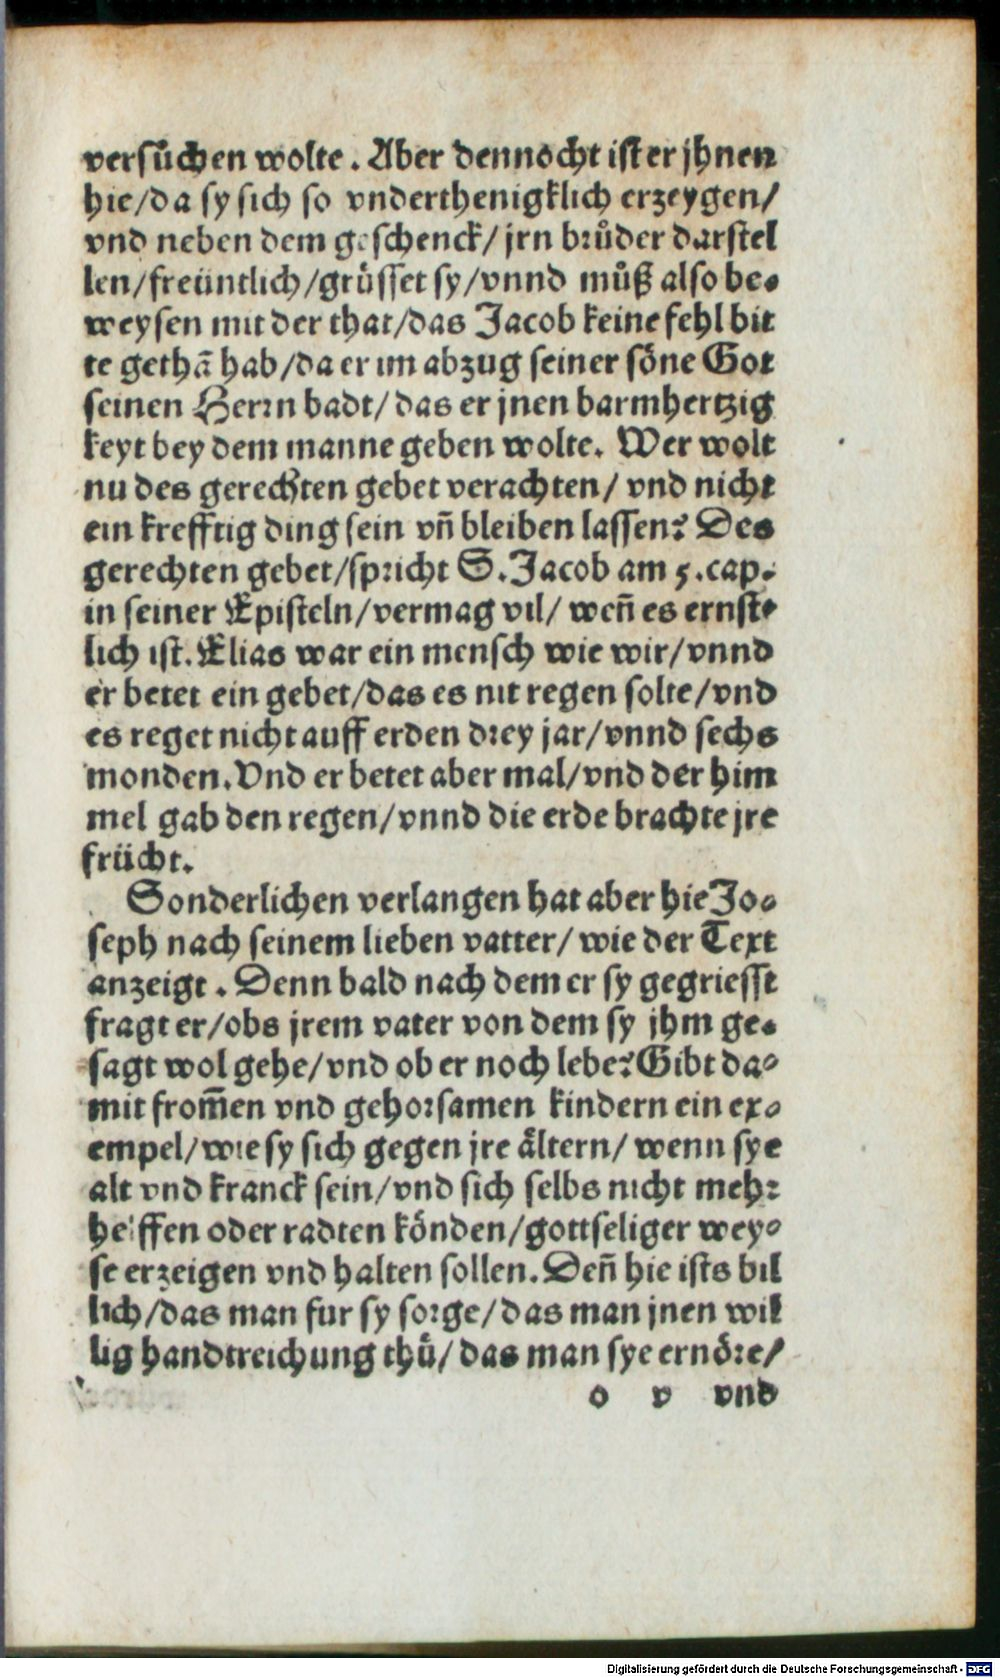 versůchen wolte. Aber dennocht ist er jhnen
hie/da sy sich so vnderthenigklich erzeygen/
vnd neben dem geschenck/ jrn brůder darstel
len/freüntlich/grüsset sy/vnnd můß also be-
weysen mit der that/das Jacob keine fehl bit
te gethā hab/da er im abzug seiner söne Got
seinen Herrn badt/das er jnen barmhertzig
keyt bey dem manne geben wolte. Wer wolt
nu des gerechten gebet verachten/ vnd nicht
ein krefftig ding sein vñ bleiben lassen? Des
gerechten gebet/spricht S.Jacob am 5.cap.
in seiner Episteln/vermag vil/ weñ es ernst-
lich ist. Elias war ein mensch wie wir/vnnd
er betet ein gebet/das es nit regen solte/vnd
es reget nicht auff erden drey jar/vnnd sechs
monden. Vnd er betet aber mal/vnd der him
mel gab den regen/vnnd die erde brachte jre
frücht.
Sonderlichen verlangen hat aber hie Jo-
seph nach seinem lieben vatter/ wie der Text
anzeigt. Denn bald nach dem er sy gegriesst
fragt er/obs jrem vater von dem sy jhm ge-
sagt wol gehe/vnd ob er noch lebe? Gibt da-
mit from̃en vnd gehorsamen kindern ein ex-
empel/wie sy sich gegen jre ältern/ wenn sye
alt vnd kranck sein/vnd sich selbs nicht mehr
helffen oder radten könden/gottseliger wey-
se erzeigen vnd halten sollen. Deñ hie ists bil
lich/das man fur sy sorge/das man jnen wil
lig handtreichung thů/das man sye ernöre/
o v vnd
Digitalisierung gefördert durch die Deutsche Forschungsgemeinschaft - DFG